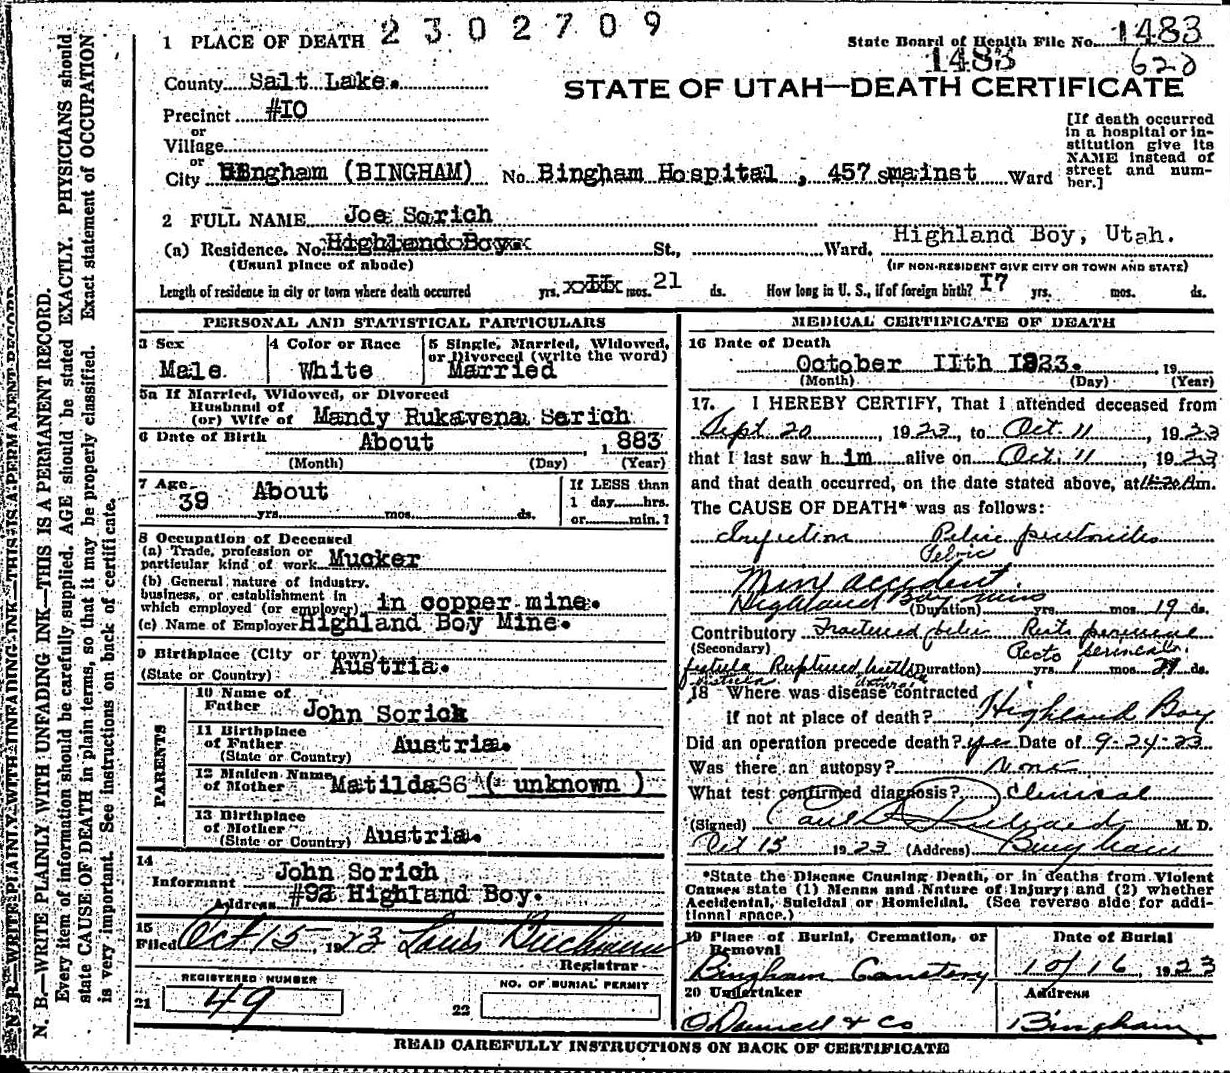 2302709
1 PLACE OF DEATH
State Board of Health File No. 1483
1483 622
County Salt Lake.
STATE OF UTAH—DEATH CERTIFICATE
Precinct #10
or
Village
or
City Bingham (BINGHAM) No. Bingham Hospital , 457 S mainst Ward
[If death occurred in a hospital or institution give its NAME instead of street and number.]
2 FULL NAME Joe Sorich
(a) Residence. No. Highland Boy St., Ward, Highland Boy, Utah.
(Usual place of abode) (IF NON-RESIDENT GIVE CITY OR TOWN AND STATE)
Length of residence in city or town where death occurred yrs. mos. 21 ds. How long in U. S., if of foreign birth? 17 yrs. mos. ds.
PERSONAL AND STATISTICAL PARTICULARS
3 Sex 4 Color or Race 5 Single, Married, Widowed, or Divorced (write the word)
Male. White Married
5a If Married, Widowed, or Divorced
Husband of
(or) Wife of Mandy Rukavena Sorich
6 Date of Birth About 1883
(Month) (Day) (Year)
7 Age About
39 yrs. mos. ds.
If LESS than
1 day hrs.
or min.?
8 Occupation of Deceased
(a) Trade, profession or
particular kind of work Mucker
(b) General nature of Industry,
business, or establishment in
which employed (or employer) in copper mine.
(c) Name of Employer Highland Boy Mine.
9 Birthplace (City or town)
(State or Country) Austria.
PARENTS
10 Name of
Father John Sorich
11 Birthplace
of Father
(State or Country) Austria.
12 Maiden Name
of Mother Matilda ( unknown )
13 Birthplace
of Mother
(State or Country) Austria.
14
Informant John Sorich
Address #92 Highland Boy.
15
Filed Oct 15, 1923 Louis Buchmann
Registrar
REGISTERED NUMBER
21 49
NO. OF BURIAL PERMIT
22
MEDICAL CERTIFICATE OF DEATH
16 Date of Death
October 11th 1923. 19
(Month) (Day) (Year)
17. I HEREBY CERTIFY, That I attended deceased from
Sept 20, 1923, to Oct. 11, 1923
that I last saw him alive on Oct. 11, 1923
and that death occurred, on the date stated above, at m.
The CAUSE OF DEATH* was as follows:
Infection Pelvic peritonitis
Pelvic
Mine accident.
Highland Boy mine
(Duration) yrs. mos. 19 ds.
Contributory Fractured pelvis Recto perineal
(Secondary) Recto
fistula Ruptured (Duration) yrs. 1 mos. ds.
18 Where was disease contracted
if not at place of death? Highland Boy
Did an operation precede death? yes Date of 9-24-23
Was there an autopsy? None
What test confirmed diagnosis? Clinical
(Signed) Paul S. Richards M. D.
Oct 15 1923 (Address) Bingham
*State the Disease Causing Death, or in deaths from Violent
Causes state (1) Means and Nature of Injury; and (2) whether
Accidental, Suicidal or Homicidal. (See reverse side for addi-
tional space.)
19 Place of Burial, Cremation, or
Removal
Bingham Cemetery
Date of Burial
10/16, 1923
20 Undertaker
O'Donnell & Co
Address
Bingham
READ CAREFULLY INSTRUCTIONS ON BACK OF CERTIFICATE
N. B.—WRITE PLAINLY WITH UNFADING INK—THIS IS A PERMANENT RECORD
N. B.—WRITE PLAINLY WITH UNFADING INK—THIS IS A PERMANENT RECORD.
Every item of information should be carefully supplied. AGE should be stated EXACTLY. PHYSICIANS should
state CAUSE OF DEATH in plain terms, so that it may be properly classified. Exact statement of OCCUPATION
is very important. See instructions on back of certificate.